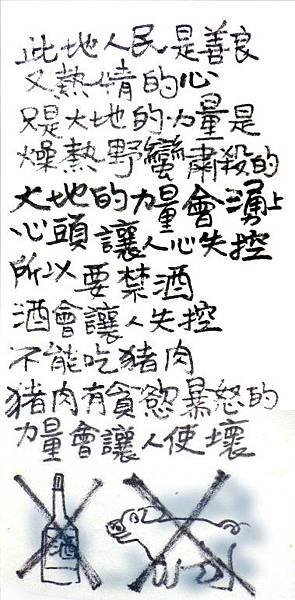 此地人民是善良
又熱情的心
只是大地的力量是
燥熱野蠻肅殺的
大地的力量會湧上
心頭讓人心失控
所以要禁酒
酒會讓人失控
不能吃豬肉
豬肉有貪慾暴怒的
力量會讓人使壞
酒